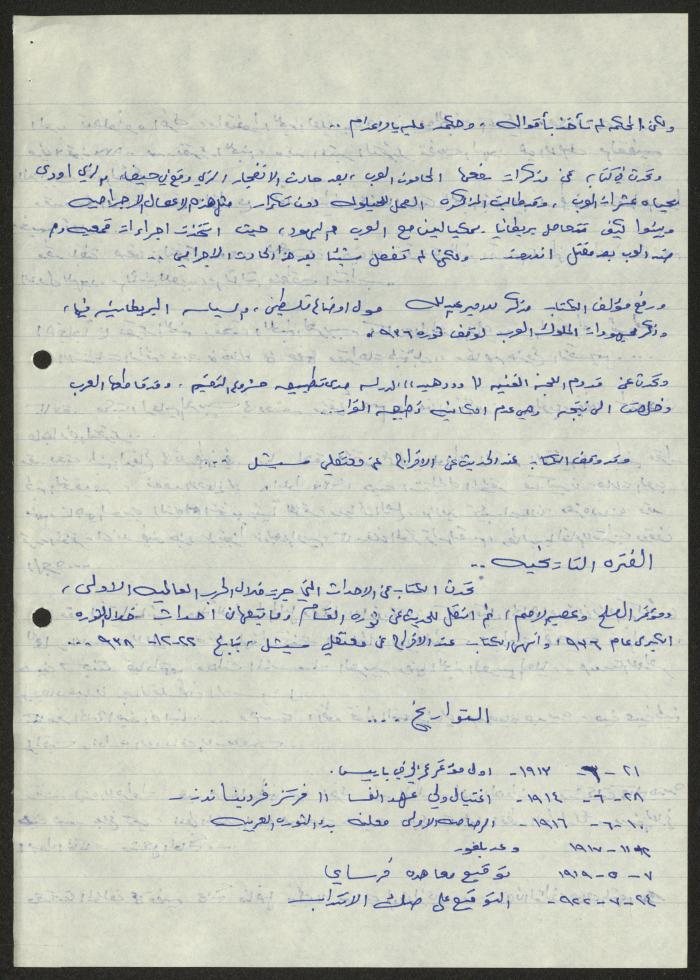 ولكن المحكمة لم تأخذ بأقواله، وحكمت عليه بالاعدام ..
وتحدث في كتابه عن مذكرات رفعها المحامون العرب، بعد حادث الانفجار الذي وقع في حيفا والذي اودى
بحياة عشرات العرب، وقد طالبت المذكرة العمل للحيلولة دون تكرار مثل هذه الاعمال الاجرامية
وبينوا كيف تتعامل بريطانيا بمكيالين مع العرب واليهود، حيث اتخذت اجراءات قمعية
ضد العرب بعد مقتل اندروز ولكنها لم تفعل شيئا بعد هذا الحادث الاجرامي ..
ورفع مؤلف الكتاب مذكرة للامير عبدالله حول اوضاع فلسطين، والسياسة البريطانية فيها،
وذكر مجهودات الملوك العرب لوقف ثورة ٩٣٦.
وتحدث عن قدوم اللجنة الفنية (( وودهيد )) لدراسة مدى تطبيق مشروع التقسيم، وقد قاطعها العرب
وخلصت الى نتيجة وهي عدم امكانية تطبيق القرار.
وقد توقف الكتاب عند الحديث عن الافراج عن معتقلي سيشل ....
الفتره التاريخيه ..
تحدث الكتاب عن الاحداث التي جرت خلال الحرب العالمية الاولى،
ومؤتمر الصلح وعصبة الامم، ثم انتقل للحديث عن ثورة القسام وما تبعها من احداث خلال الثورة
الكبرى عام ٩٣٦، وانهى الكتاب عند الافراج عن معتقلي سيشل، بتاريخ ٢٢-١٢-٩٣٨ ...
التواريخ ....
٢١ - ٦ - ١٩١٣ - اول مؤتمر عربي في باريس.
٢٨ - ٦ - ١٩١٤ - اغتيال ولي عهد النمسا (( فرنز فرديناند ))
١٠ - ٦ - ١٩١٦ - الرصاصة الاولى معلنة بدء الثورة العربية
٢-١١-١٩١٧ وعد بلفور
٧ - ٥ - ١٩١٩ - توقيع معاهدة فرساي
٢٤ - ٧ - ٩٢٢ - التوقيع على صك الانتداب